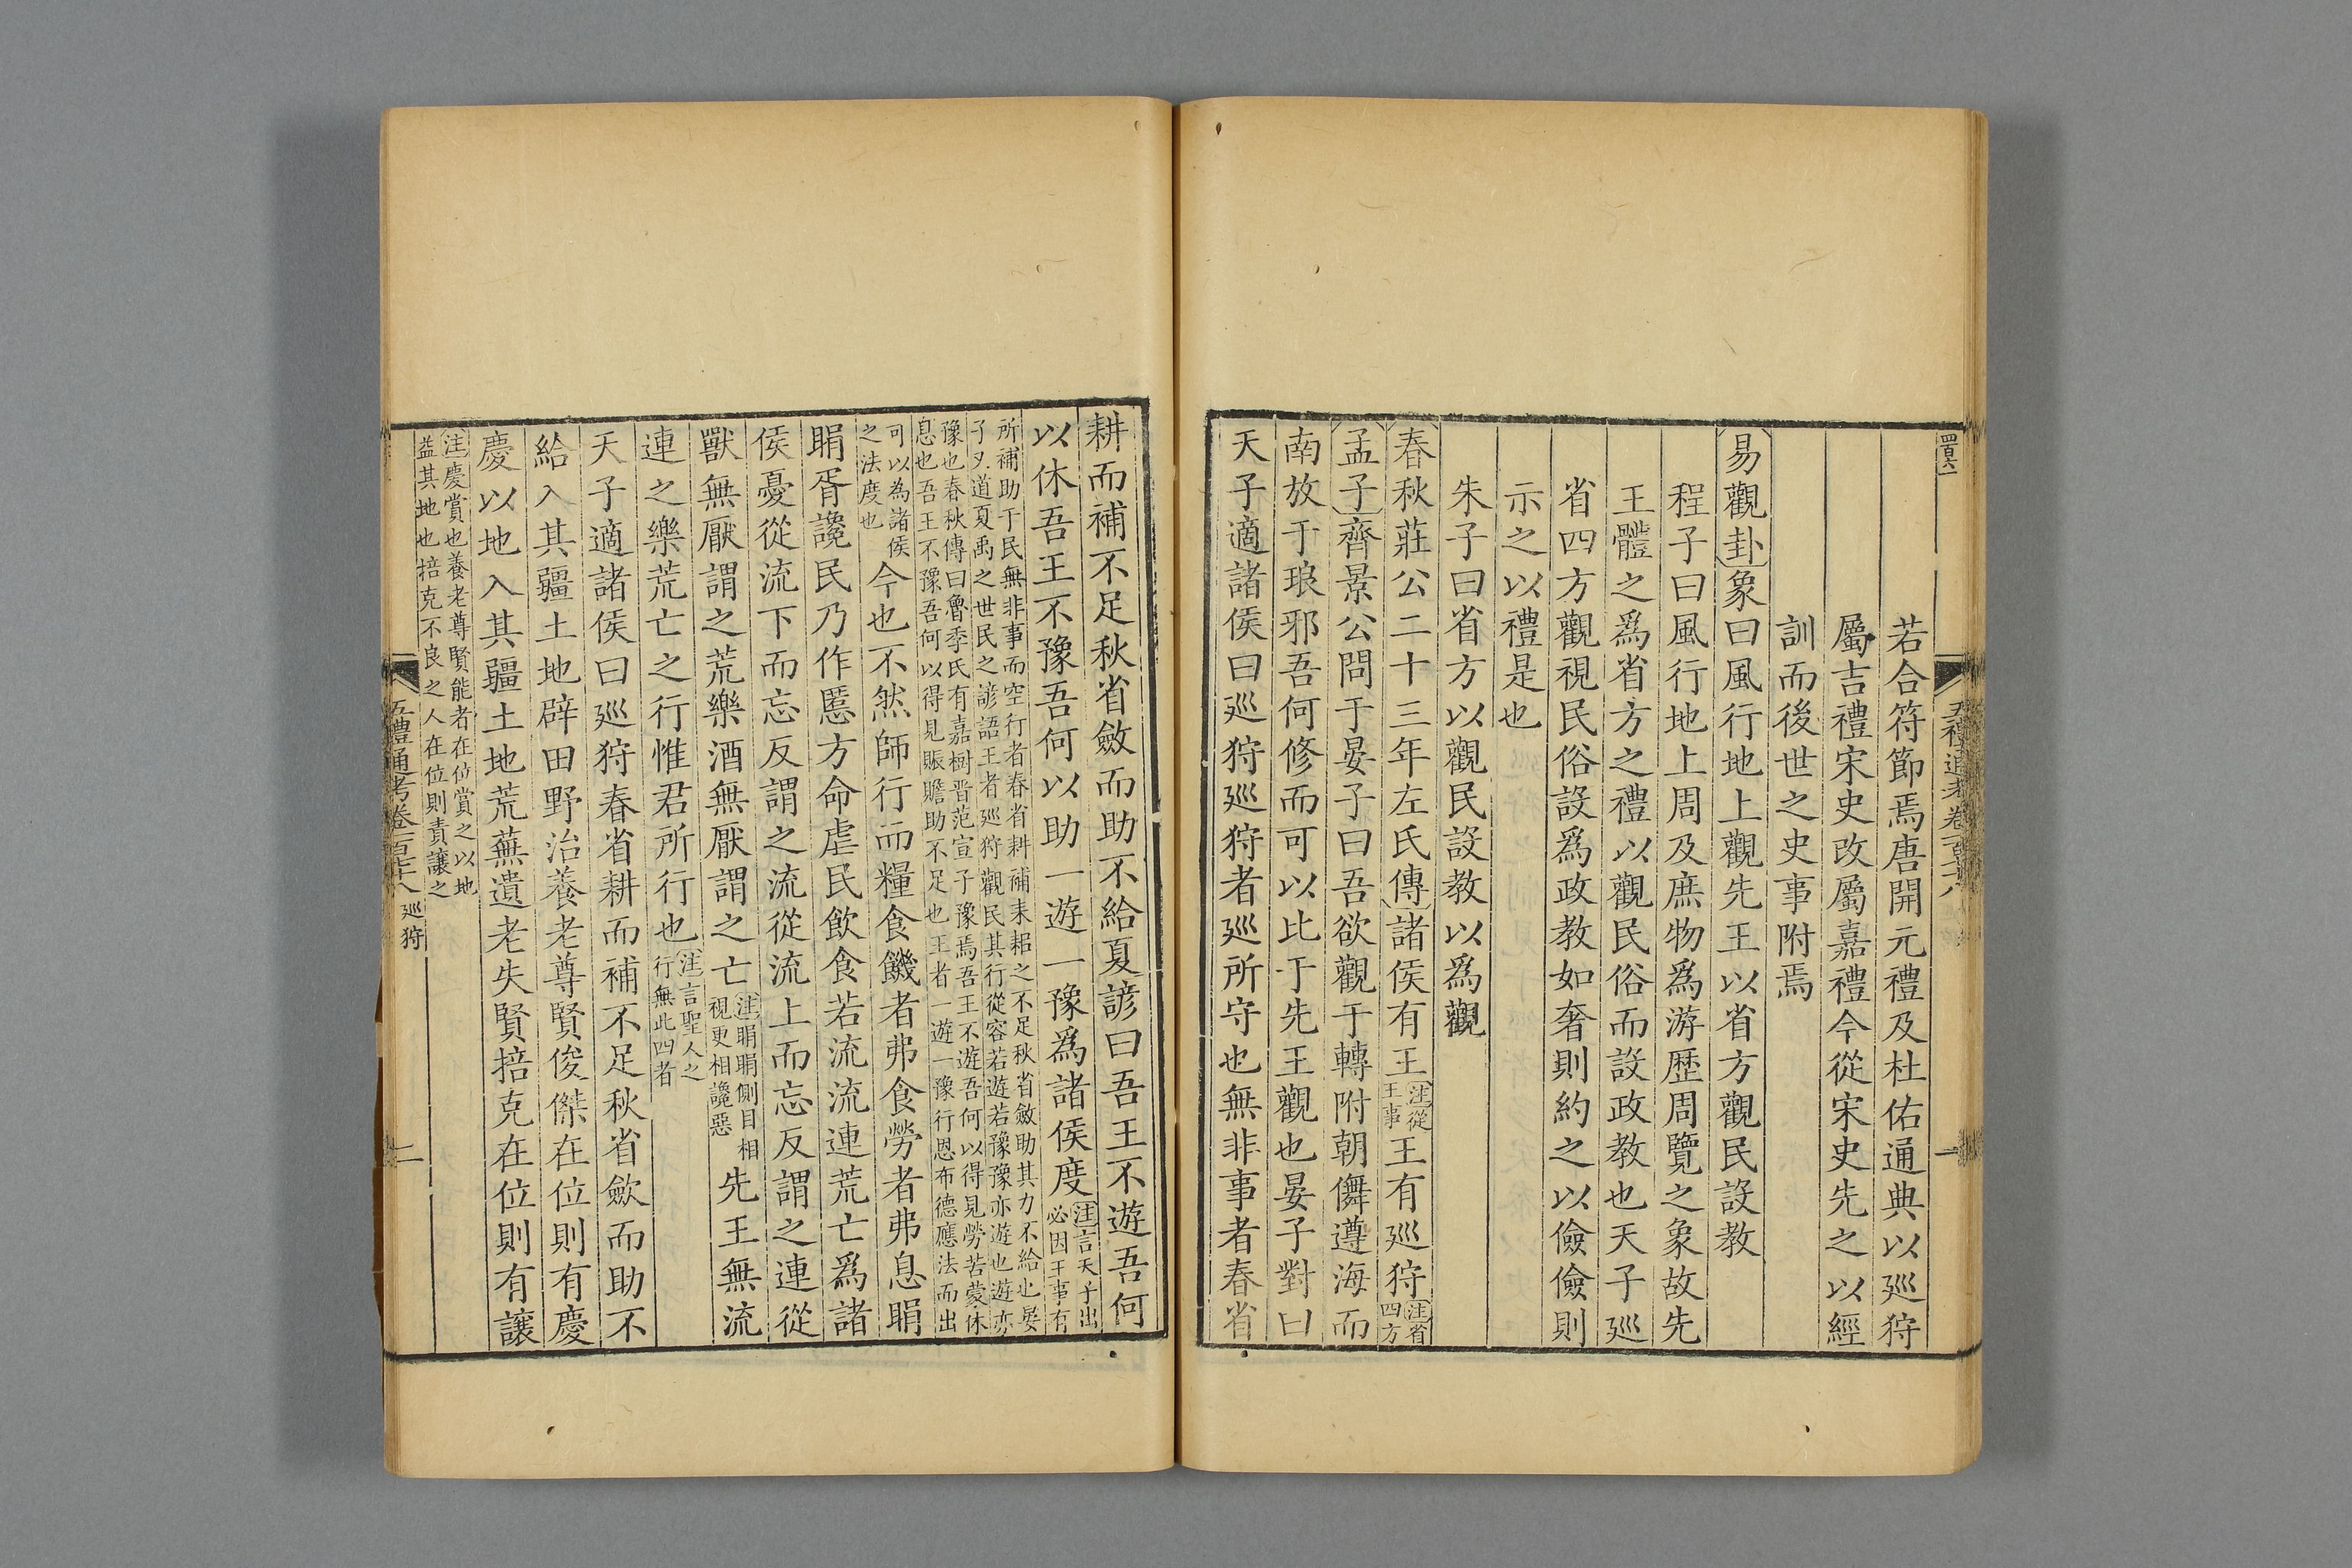 四百六一
五禮通考卷一百七十八
一
若合符節焉唐開元禮及杜佑通典以巡狩
屬吉禮宋史改屬嘉禮今從宋史先之以經
訓而後世之史事附焉
易觀卦象曰風行地上觀先王以省方觀民設教
程子曰風行地上周及庶物爲游歷周覽之象故先
王體之爲省方之禮以觀民俗而設政教也天子巡
省四方觀視民俗設爲政教如奢則約之以儉儉則
示之以禮是也
朱子曰省方以觀民設教以爲觀
春秋莊公二十三年左氏傳諸侯有王注從王事王有巡狩注省四方
孟子齊景公問于晏子曰吾欲觀于轉附朝儛遵海而
南放于琅邪吾何修而可以比于先王觀也晏子對曰
天子適諸侯曰巡狩巡狩者巡所守也無非事者春省
耕而補不足秋省斂而助不給夏諺曰吾王不遊吾何
以休吾王不豫吾何以助一遊一豫爲諸侯度注言天子出必因王事有
所補助于民無非事而空行者春省耕補耒耜之不足秋省斂助其力不給也晏
子又道夏禹之世民之諺語王者巡狩觀民其行從容若遊若豫豫亦遊也遊亦
豫也春秋傳曰魯季氏有嘉樹晋范宣子豫焉吾王不遊吾何以得見勞苦蒙休
息也吾王不豫吾何以得見賑贍助不足也王者一遊一豫行恩布德應法而出
可以為諸侯之法度也今也不然師行而糧食饑者弗食勞者弗息睊
睊胥讒民乃作慝方命虐民飲食若流流連荒亡爲諸
侯憂從流下而忘反謂之流從流上而忘反謂之連從
獸無厭謂之荒樂酒無厭謂之亡注睊睊側目相視更相讒惡先王無流
連之樂荒亡之行惟君所行也注言聖人之行無此四者
天子適諸侯曰巡狩春省耕而補不足秋省斂而助不
給入其疆土地辟田野治養老尊賢俊傑在位則有慶
慶以地入其疆土地荒蕪遺老失賢掊克在位則有讓
注慶賞也養老尊賢能者在位賞之以地
益其地也掊克不良之人在位則責讓之
五禮通考卷一百七十八 巡狩
二